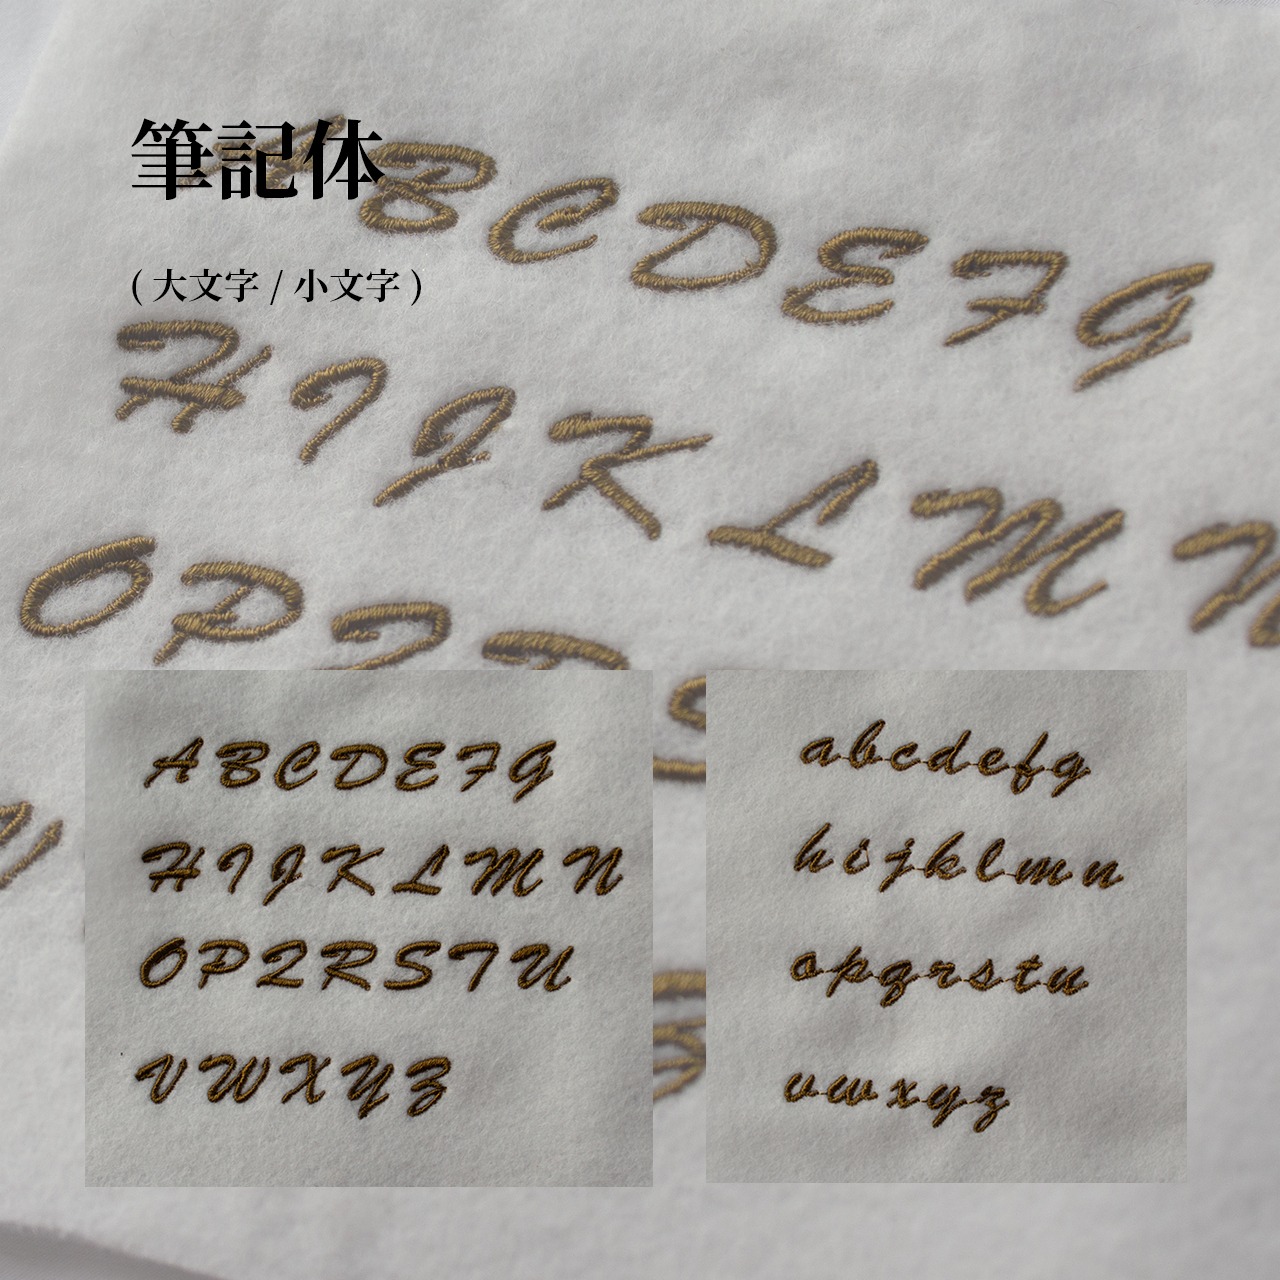 筆記体
( 大文字 / 小文字 )
A B C D E F G
H I J K L M N
O P Q R
A B C D E F G
H I J K L M N
O P Q R S T U
V W X Y Z
a b c d e f g
h i j k l m n
o p q r s t u
v w x y z